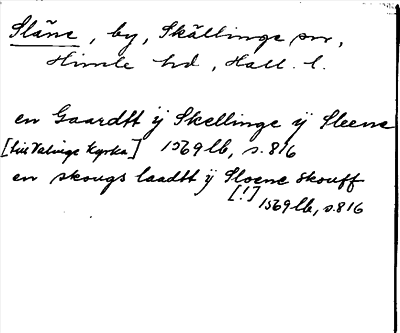 Släne, by, Skällinge sn,
Himle hd, Hall. l.
en Gaardtt ÿ Skellinge ÿ Sleene
[till Valinge Kyrka] 1569 lb, s. 816
en skougs laadtt ÿ Sloene skouff
[!] 1569 lb, s. 816